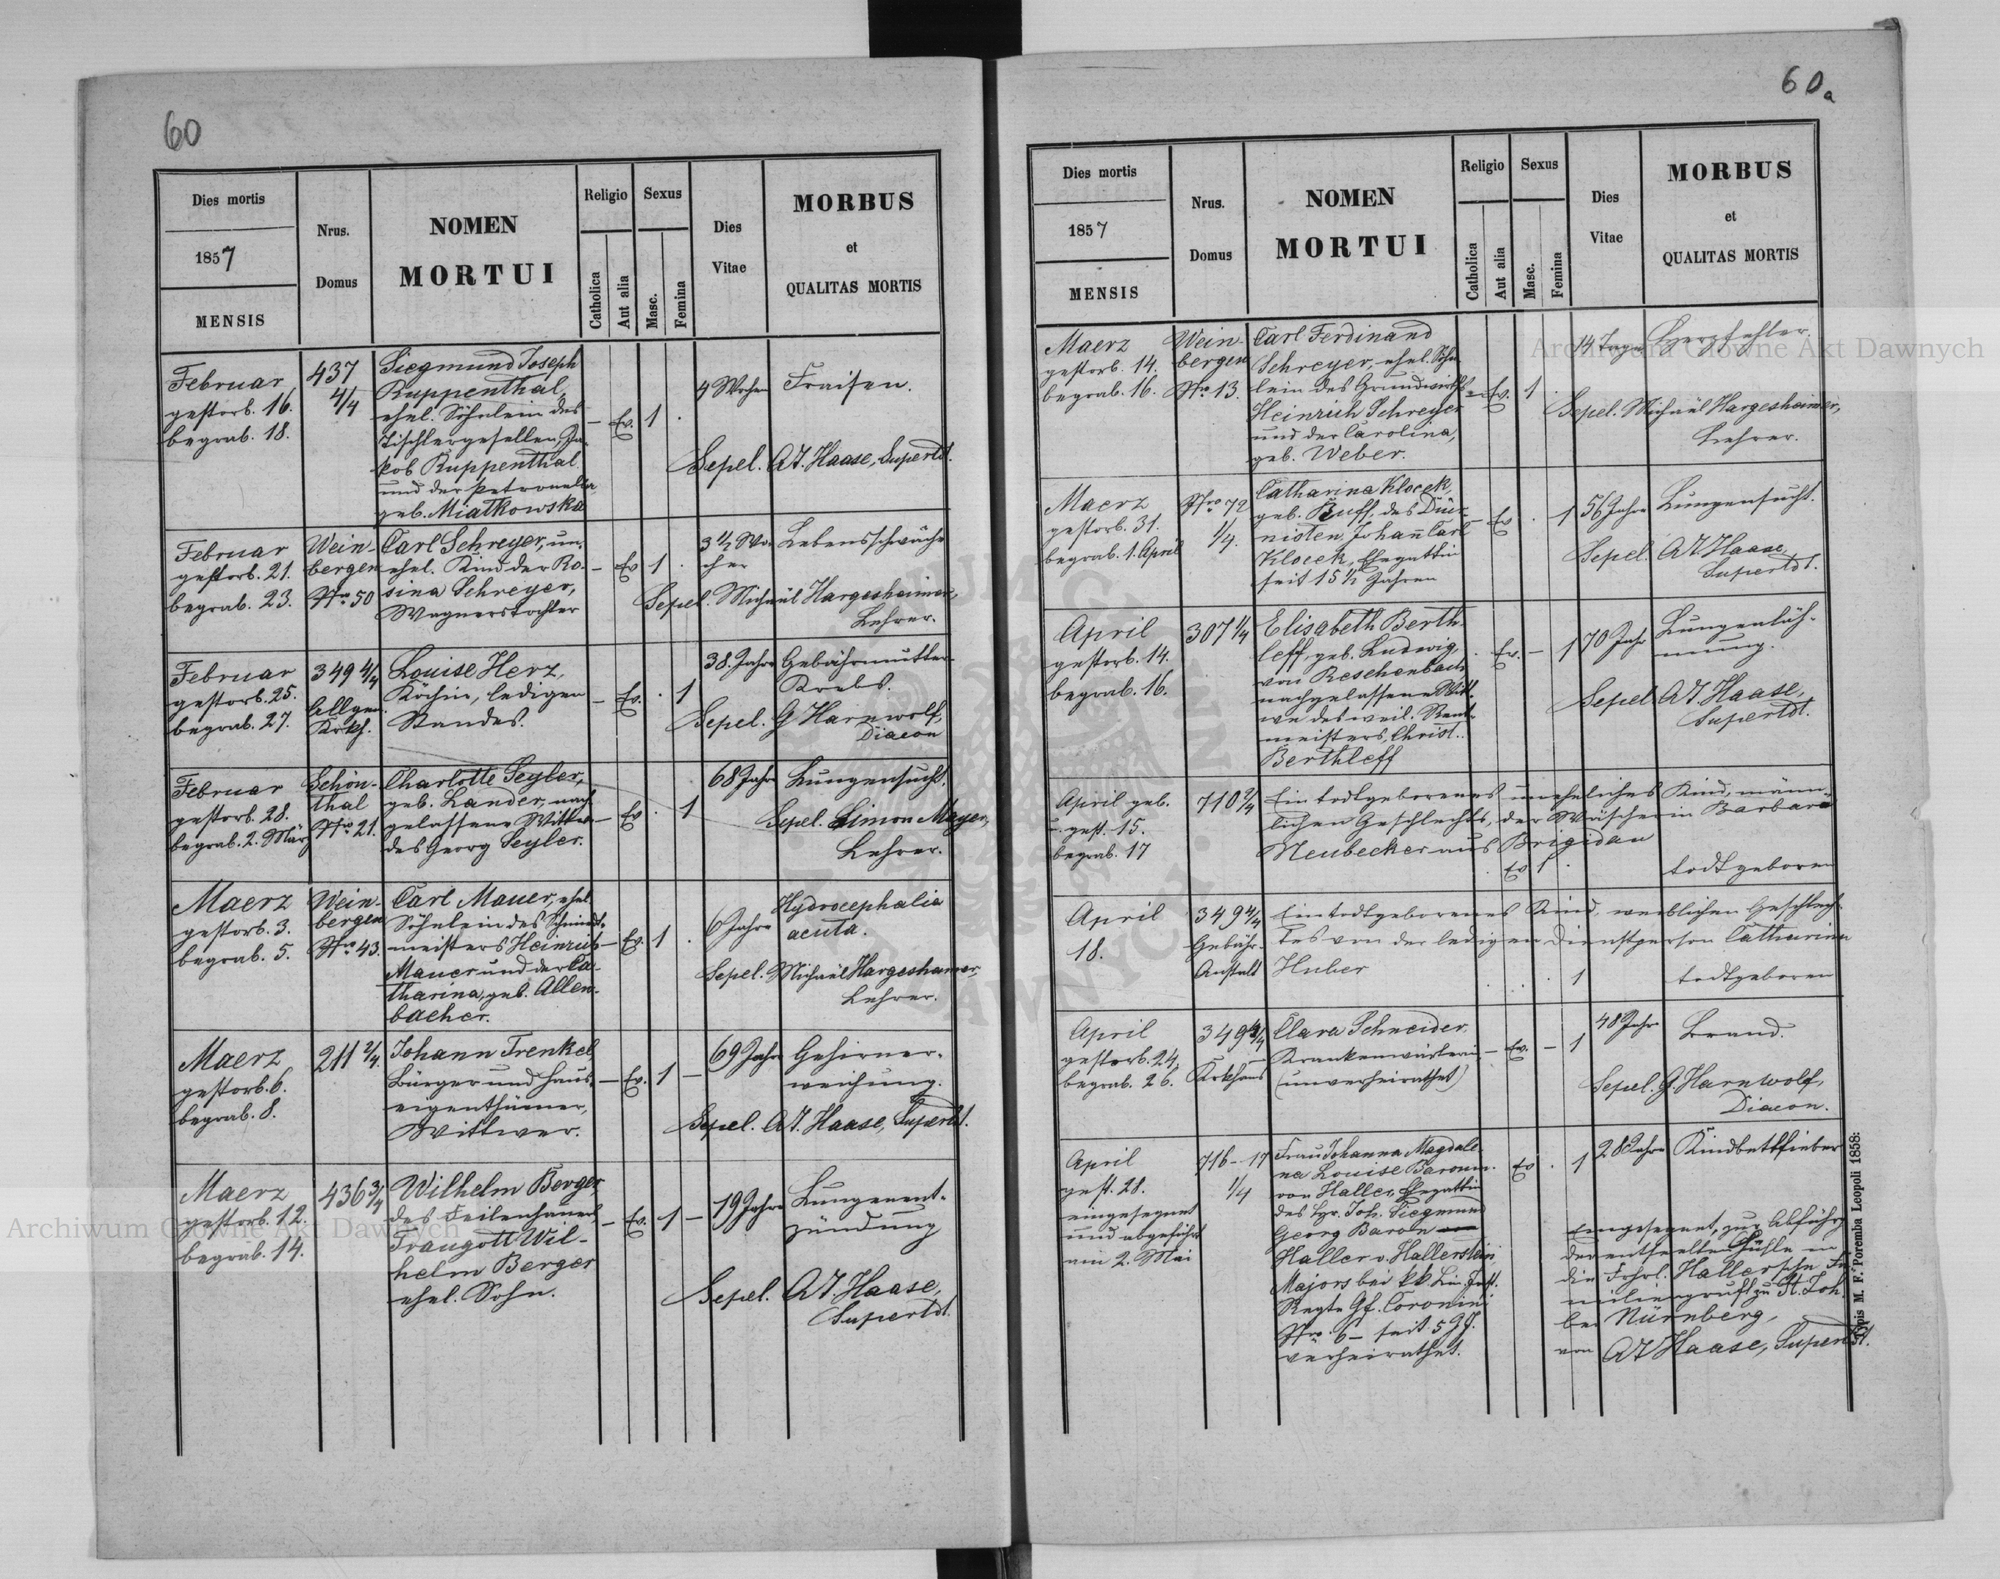 60
Dies mortis
1857
MENSIS
Nrus.
Domus
NOMEN
MORTUI
Religio
Catholica
Aut alia
Sexus
Masc.
Femina
Dies
Vitae
MORBUS
et
QUALITAS MORTIS
Februar
gestorb. 16.
begrab. 18.
437
4/4
Siegmund Joseph
Ruppenthal,
ehel. Söhnlein des
Tischlergesellen Ja-
kob Ruppenthal
und der Petronella
geb. Miatkowska
– Ev. 1 .
4 Wochen
Fraisen.
Sepel. A. T. Haase, Superdt.
Februar
gestorb. 21.
begrab. 23.
Wein-
bergen
Nro 50
Carl Schreyer, un-
ehel. Kind der Ro-
sina Schreyer,
Wagnerstochter
– Ev 1 .
3 1/2 Wo-
chen
Lebensschwäche
Sepel. Michaël Hargesheimer,
Lehrer.
Februar
gestorb. 25.
begrab. 27.
349 4/4
Allgem.
Krkh.
Louise Herz,
Köchin, ledigen
Standes.
– Ev. . 1
38. Jahre
Gebährmutter-
Krebs.
Sepel. G Harnwolf,
Diacon
Februar
gestorb. 28.
begrab. 2. März
Schön-
thal
Nro 21.
Charlotte Seyler,
geb. Lander, nach-
gelassene Wittwe
des Georg Seyler.
– Ev . 1
68 Jahre
Lungensucht.
Sepel. Simon Mayer,
Lehrer.
Maerz
gestorb. 3.
begrab. 5.
Wein-
bergen
Nro 43.
Carl Mauer, ehel.
Söhnlein des Schmidt-
meisters Heinrich
Mauer und der Ca-
tharina, geb. Allen-
bacher.
– Ev. 1 .
6 Jahre
Hydrocephalia
acuta.
Sepel. Michaël Hargesheimer,
Lehrer.
Maerz
gestorb. 6.
begrab. 8.
211 2/4
Johann Trenkel,
Bürger und Haus-
eigenthümer,
Wittwer.
– Ev. 1 –
69 Jahre
Gehirner-
weichung.
Sepel. A. T. Haase, Superdt.
Maerz
gestorb. 12.
begrab. 14.
436 3/4
Wilhelm Berger,
des Feilenhauers
Traugott Wil-
helm Berger
ehel. Sohn.
– Ev. 1 –
19 Jahre
Lungenent-
zündung
Sepel. A. T. Haase,
Superdt.
60a
Dies mortis
1857
MENSIS
Nrus.
Domus
NOMEN
MORTUI
Religio
Catholica
Aut alia
Sexus
Masc.
Femina
Dies
Vitae
MORBUS
et
QUALITAS MORTIS
Maerz
gestorb. 14.
begrab. 16.
Wein-
bergen
Nro 13.
Carl Ferdinand
Schreyer, ehel. Söhn-
lein des Grundwirths
Heinrich Schreyer
und der Carolina,
geb. Weber.
– Ev. 1 .
14 Tage
Herzfehler
Sepel. Michaël Hargesheimer,
Lehrer.
Maerz
gestorb. 31.
begrab. 1. April
Nro 72
1/4.
Catharina Klocek,
geb. Buff, des Diur-
nisten Johann Carl
Klocek, Ehegattin
seit 15 1/2 Jahren
– Ev . 1
56 Jahre
Lungensucht.
Sepel. A. T. Haase,
Superdt.
April
gestorb. 14.
begrab. 16.
307 1/4
Elisabeth Berth-
leff, geb. Ludwig,
von Reschenbach
nachgelassene Witt-
we des weil. Rent-
meisters, Christ.
Berthleff
. Ev. – 1
70 Jahr
Lungenläh-
mung.
Sepel. A. T. Haase,
Superdt.
April geb.
u. gest. 15.
begrab. 17
710 2/4
Ein todtgeborenes uneheliches Kind, männ-
lichen Geschlechts, der Wäscherin Barbara
Neubecker aus Brigidau
. Ev 1 .
todtgeboren
April
18.
349 4/4
Gebähr-
Anstalt
Ein todtgeborenes Kind, weiblichen Geschlech-
tes von der ledigen Dienstperson Catharina
Huber
. . . 1
todtgeboren
April
gestorb. 24.
begrab. 26.
349 4/4
Krkhaus
Clara Schneider,
Krankenwärterin
(unverheirathet)
– Ev. – 1
48 Jahr
Brand.
Sepel. G. Harnwolf,
Diacon.
April
gest. 28.
eingesegnet
und abgeführt
am 2. Mai
716-17
1/4
Frau Johanna Magdale-
na Louise Baronin
von Haller, Ehegattin
des Hr. Joh. Siegmund
Georg Baron
Haller v. Hallerstein,
Majors bei kk Lin. Inft.
Regte Gf. Coronini
Nro 6 – seit 5 Jj.
verheirathet.
. Ev . 1
28 Jahre
Kindbettfieber
Eingesegnet, zur Abführg
der entseelten Hülle in
die Frhrl. Haller'sche Fa-
miliengruft zu St. Joh.
bei Nürnberg,
von A. T. Haase, Superdt.
Typis M. F. Poremba Leopoli 1858.
Archiwum Główne Akt Dawnych
Archiwum Główne Akt Dawnych